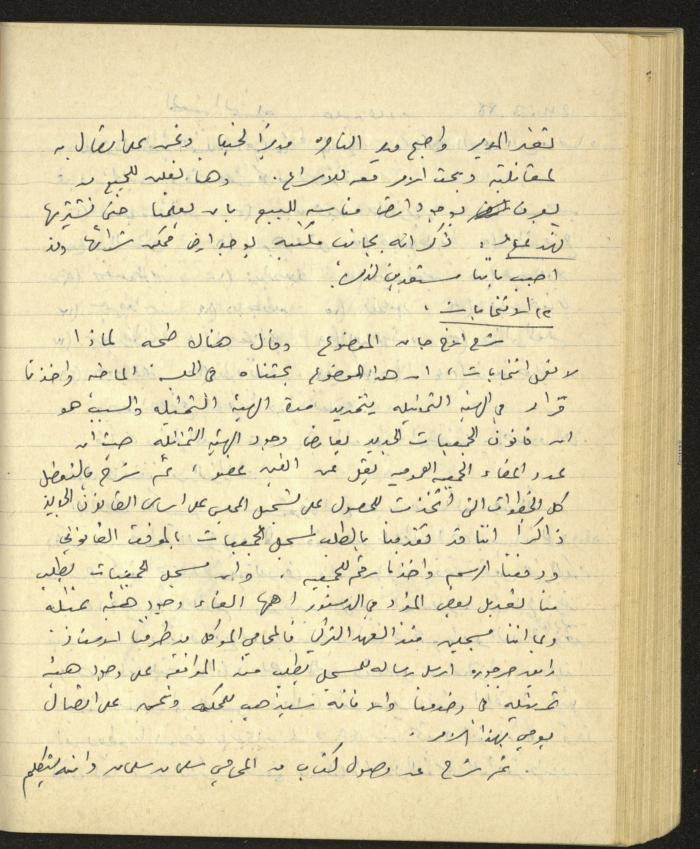 لتغذ المدير واصبح مدير الناصره مديرًا لحيفا. ونحن على اتصال به
لمقابلته وبحث الامر معه للاسراع. وهنا نعلن للجميع من
يعرف بوجود ارض مناسبه للبيع بان يعلمنا حتى نشتريها
لهذه الغاية. ذكر انه بجانب مكتبه يوجد ارض ممكن شرائها وقد
اجيب باننا مستعدين لذلك.
٣) الانتخابات:
شرح الاخ الموضوع وقال هناك لماذا
لا نعمل انتخابات، ان هذا الموضوع بحثناه في الجلسه الماضيه واخذنا
قرار في الهيئة التمثيليه بتمديد مدة الهيئة التمثيليه والسبب هو
ان قانون الجمعيات الجديد يعارض وجود الهيئه التمثيليه حيث ان
عدد اعضاء الجمعيه العموميه يقل عن الفين عضو، ثم شرح بالتفصيل
كل الخطوات التي أتخذت للحصول على تسجيل المجلس على اساس القانون الجديد
ذاكرًا اننا قد تقدمنا بالطلب لمسجل الجمعيات بالموقف القانوني
ودفعنا الرسم واخذنا رقم للجمعيه وان مسجل الجمعيات يطلب
منا تعديل بعض المواد في الدستور اهمها الغاء وجود هيئة تمثيليه
وبما اننا مسجلين منذ العهد التركي فالمحامي الموكل من طرفنا الاستاذ
ارسل رساله للمسجل يطلب منه الموافقه على وجود هيئة
تمثيليه في دستورنا والا فانه سيذهب للمحكمه ونحن على اتصال
يومي بهذا الامر.
ثم شرح عن وصول كتاب من المحامي سلمان سلمان وانه